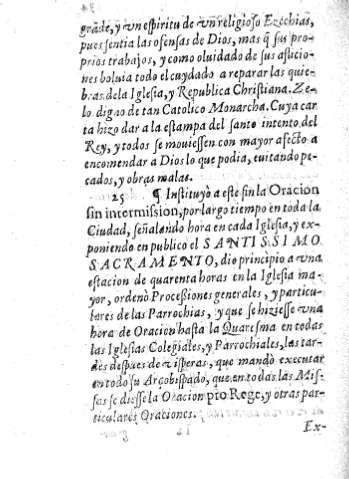 grãde, y vn espiritu de vn religioso Ezechias,
pues sentia las ofensas de Dios, mas q̃ sus pro-
prios trabajos, y como oluidado de sus aflicio-
nes boluia todo el cuydado a reparar las quie-
bras de la Iglesia, y Republica Christiana. Ze-
lo digno de tan Catolico Monarcha. Cuya car
ta hizo dar a la estampa del santo intento del
Rey, y todos se mouiessen con mayor afecto a
encomendar a Dios lo que podia, euitando pe-
cados, y obras malas.
25 ¶ Instituyò a este fin la Oracion
sin intermission, por largo tiempo en toda la
Ciudad, señalando hora en cada Iglesia, y ex-
poniendo en publico el SANTISSIMO
SACRAMENTO, dio principio a vna
estacion de quarenta horas en la Iglesia ma-
yor, ordenò Processiones generales, y particu-
lares de las Parrochias, y que se hiziesse vna
hora de Oracion hasta la Quaresma en todas
las Iglesias Colegiales, y Parrochiales, las tar-
des despues de Visperas, que mandò executar
en todo su Arçobispado, que en todas las Mis-
sas se diesse la Oracion pro Rege, y otras par-
ticulares Oraciones.
Ex-